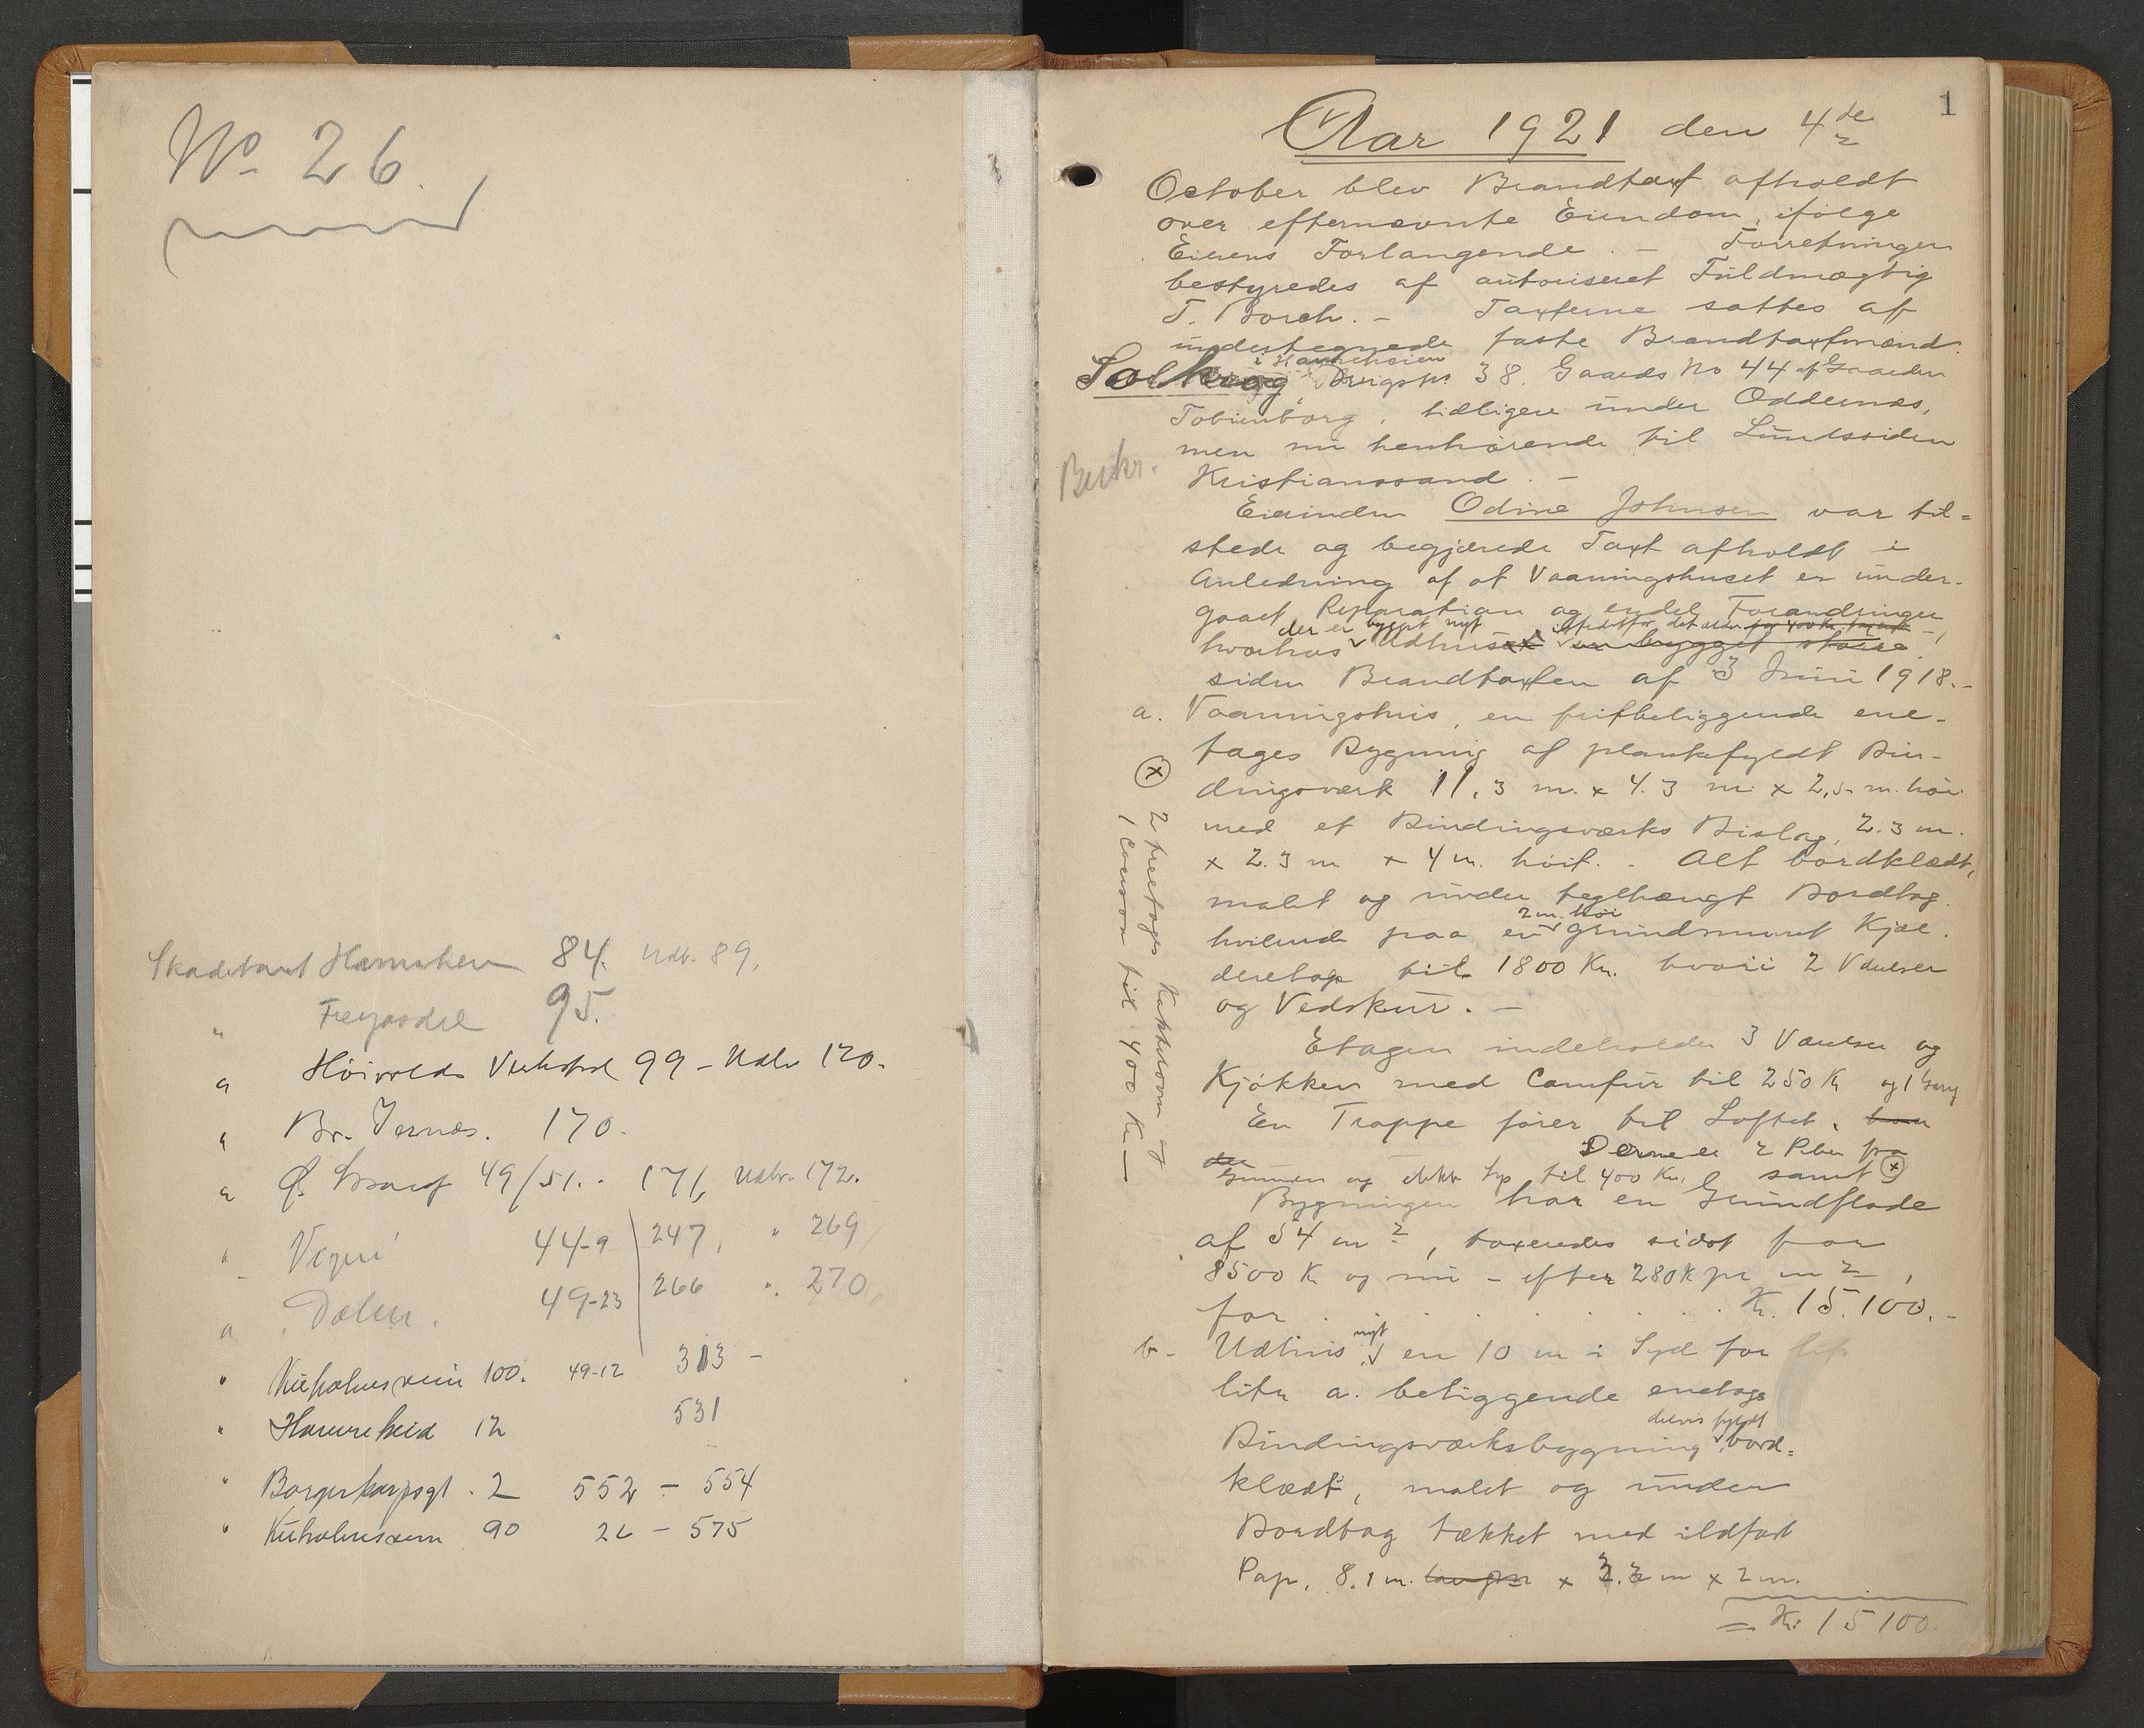 No 26.
Skadetaxt Hamreheia 84. Udb. 89.
" Frejasdal 95.
" Høivolds 99 - Udb. 120.
" Br. Jernes. 170.
" 49/51. - 171, Udbr. 172.
" 44-9 247, " 269
" Dalen. 49-23 266 ". 270
" Kuholmsveien 100. 49-12 313 -
" Hamreheia 12 531
" Borgerkorpsgt. 2 552 - 554
" Kuholmsveien 90 26 - 575
1
Aar 1921 den 4de
October blev Brandtaxt afholdt
over efternævnte Eiendom, ifølge
Eierens Forlangende. - Forretningen
bestyredes af autoriseret Fuldmægtig
T. Borch. - Taxterne sattes af
undertegnede faste Brandtaxtmænd.
i Hamreheien
Solkrog Brugsnr. 38. Gaards No 44 af Gaarden
Tobienborg, tidligere under Oddernes,
men nu henhørende til Lundssiden
Kristianssand. -
Beskr.
Eierinden Odine Johnsen var til=
stede og begjærede Taxt afholdt i
Anledning af at Vaaningshuset er under-
gaaet Reparation og endel Forandringer
der er bygget nyt istedetfor det
hvorhos Udhuset er bygget større
siden Brandtaxten af 3 Juni 1918. -
a. Vaaningshus, en fritbeliggende ene-
tages Bygning af plankefyldt Bin-
dingsværk 11,3 m. x 4.3 m x 2,5 m. høi
med et Bindingsværks Bislag, 2.3 m.
x 2.3 m x 4 m. høit. - Alt bordklædt,
malet og under teglhængt Bordtag
2 m. høi
hvilende paa en grundmuret Kjæl-
deretage til 1800 Kr. hvori 2 Værelser
og Vedskur. -
Etagen indeholder 3 Værelser og
Kjøkken med Comfur til 250 Kr og 1 Gang
En Trappe fører til Loftet.
Derne er 2 Piber fra
Grunden og elektr. Lys til 400 Kr. samt (x)
(x) 2 treetages Kakkelovne og
1 til 400 Kr -
Bygningen har en Grundflade
af 54 m2, taxeredes sidst for
8500 K og nu - efter 280 K pr m2,
for . . . . . . Kr. 15.100.-
b - Udhus, nyt en 10 m i Syd for
litr a. beliggende enetages
delvis fyldt
Bindingsværksbygning, bord=
klædt, malet og under
Bordtag tækket med ildfast
Pap, 8.1 m. langen x 3.3 m x 2 m.
= Kr. 15100.